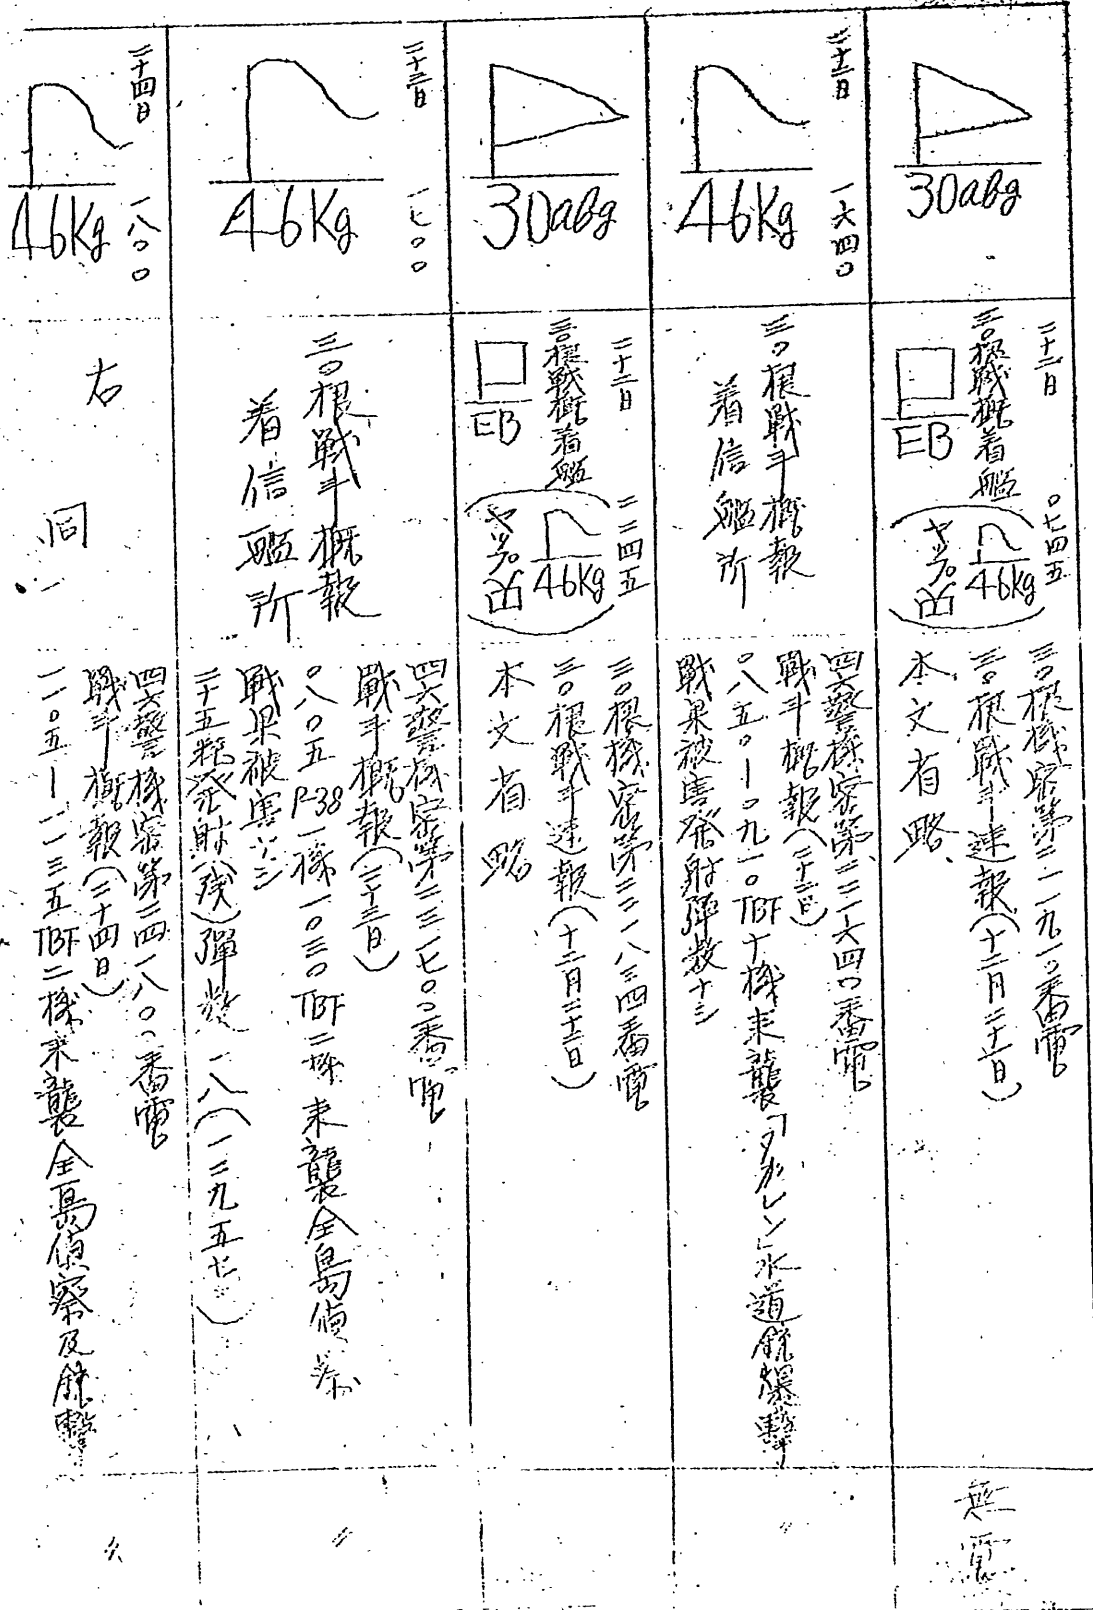 30abg
二十二日 〇七四五
三〇根戦概着艦
EB
46Kg
ヤップ
三〇根機密第二一一九一〇番電
三〇根戦斗速報(十二月二十一日)
本文省略
無電
二十二日 一六四〇
46Kg
三〇根戦斗概報
着信艦所
四六警機密第二二一六四〇番電
戦斗概報(二十二日)
〇八五〇ー〇九一〇TBF十機来襲「マカレン」水道銃爆撃
戦果被害発射弾数ナシ
〃
30abg
二十二日 二二四五
三〇根戦概着艦
EB
46Kg
ヤップ
三〇根機密第二二一八三四番電
三〇根戦斗速報(十二月二十二日)
本文省略
二十三日 一七〇〇
46Kg
三〇根戦斗概報
着信艦所
四六警機密第二三一七〇〇番電
戦斗概報(二十三日)
〇八〇五P-38一機一〇三〇TBF二機来襲全島偵察
戦果被害ナシ
二十五粍発射(残)弾数一八(一二九五七)
〃
二十四日 一八〇〇
46Kg
右同
四六警機密第二四一八〇〇番電
戦斗概報(二十四日)
一一〇五ー一一三五TBF二機来襲全島偵察及銃撃
〃